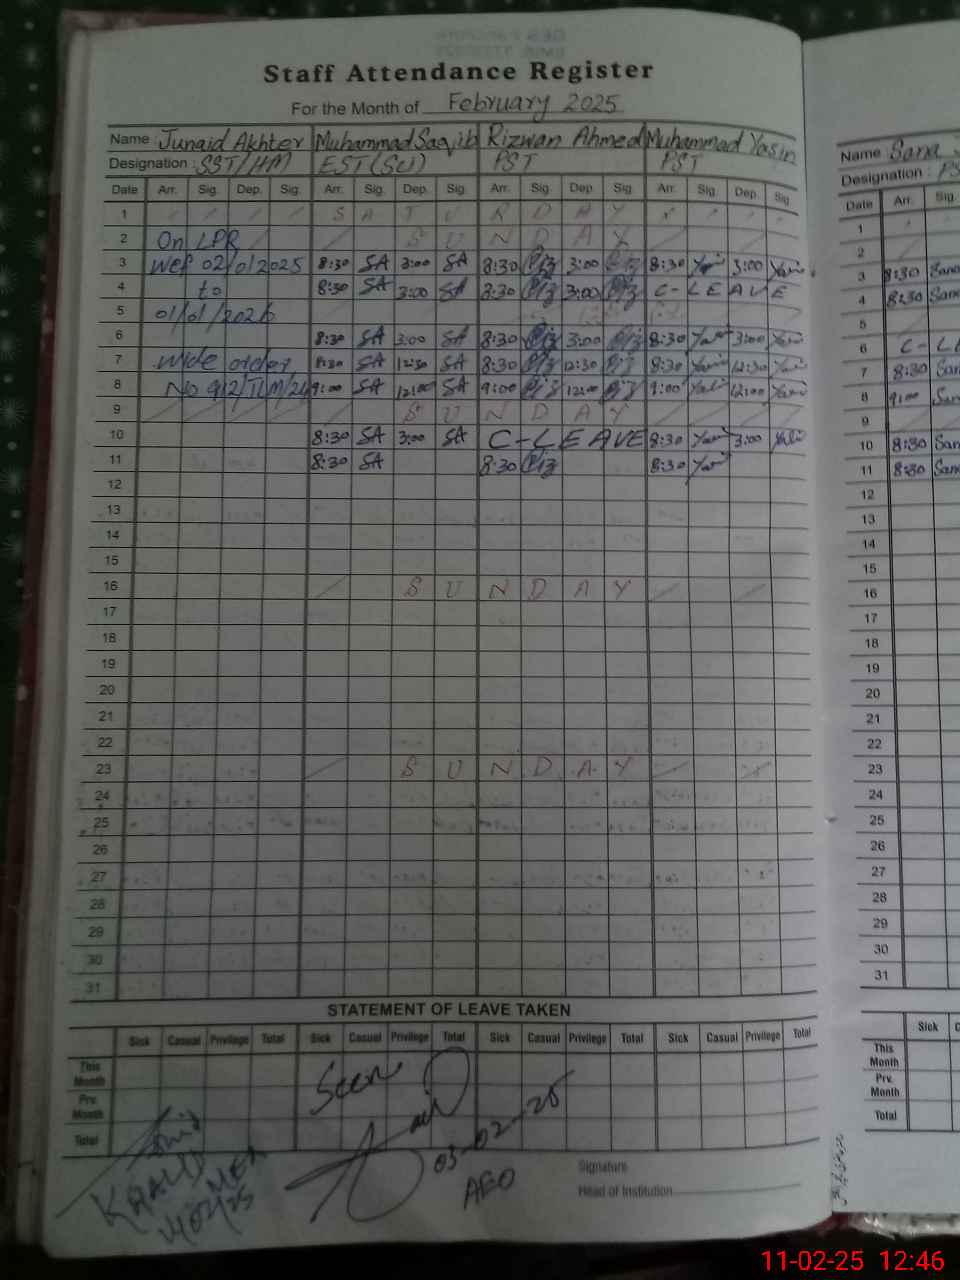 Staff Attendance Register
For the Month of February 2025
Name : Junaid Akhter Muhammad Saqib Rizwan Ahmed Muhammad Yasin
Designation : SST/HM EST(SU) PST PST
Date Arr. Sig. Dep. Sig. Arr. Sig. Dep. Sig. Arr. Sig. Dep. Sig. Arr. Sig. Dep. Sig.
1 S A T U R D A Y
2 On LPR S U N D A Y
3 Wef 02/01/2025 8:30 SA 3:00 SA 8:30 3:00 8:30 Yasin 3:00 Yasin
4 to 8:30 SA 3:00 SA 8:30 3:00 C-LEAVE
5 01/01/2026
6 8:30 SA 3:00 SA 8:30 3:00 8:30 Yasin 3:00 Yasin
7 Wide order 8:30 SA 12:30 SA 8:30 12:30 8:30 Yasin 12:30 Yasin
8 No 912/TLM/24 9:00 SA 12:00 SA 9:00 12:00 9:00 Yasin 12:00 Yasin
9 S U N D A Y
10 8:30 SA 3:00 SA C-LEAVE 8:30 Yasin 3:00 Yasin
11 8:30 SA 8:30 8:30 Yasin
12
13
14
15
16 S U N D A Y
17
18
19
20
21
22
23 S U N D A Y
24
25
26
27
28
29
30
31
STATEMENT OF LEAVE TAKEN
Sick Casual Privilege Total Sick Casual Privilege Total Sick Casual Privilege Total Sick Casual Privilege Total
This Month
Prv. Month
Total
Seen
03-02-25
AEO
KHALID
MEA
11/02/25
Signature
Head of Institution
Name : Sana
Designation : PS
Date Arr. Sig.
1
2
3 8:30 Sana
4 8:30 Sana
5
6 C-LE
7 8:30 San
8 9:00 San
9
10 8:30 San
11 8:30 San
12
13
14
15
16
17
18
19
20
21
22
23
24
25
26
27
28
29
30
31
Sick C
This Month
Prv. Month
Total
11-02-25 12:46